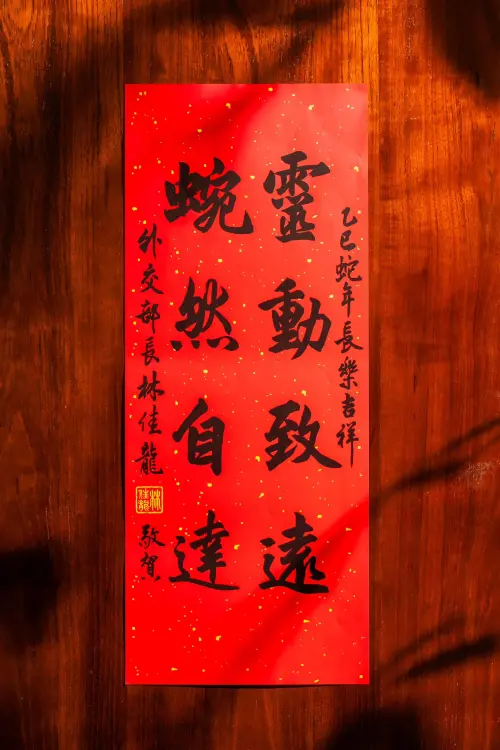 乙巳蛇年長樂吉祥
靈動致遠
蜿然自達
外交部長林佳龍
林佳龍
敬賀